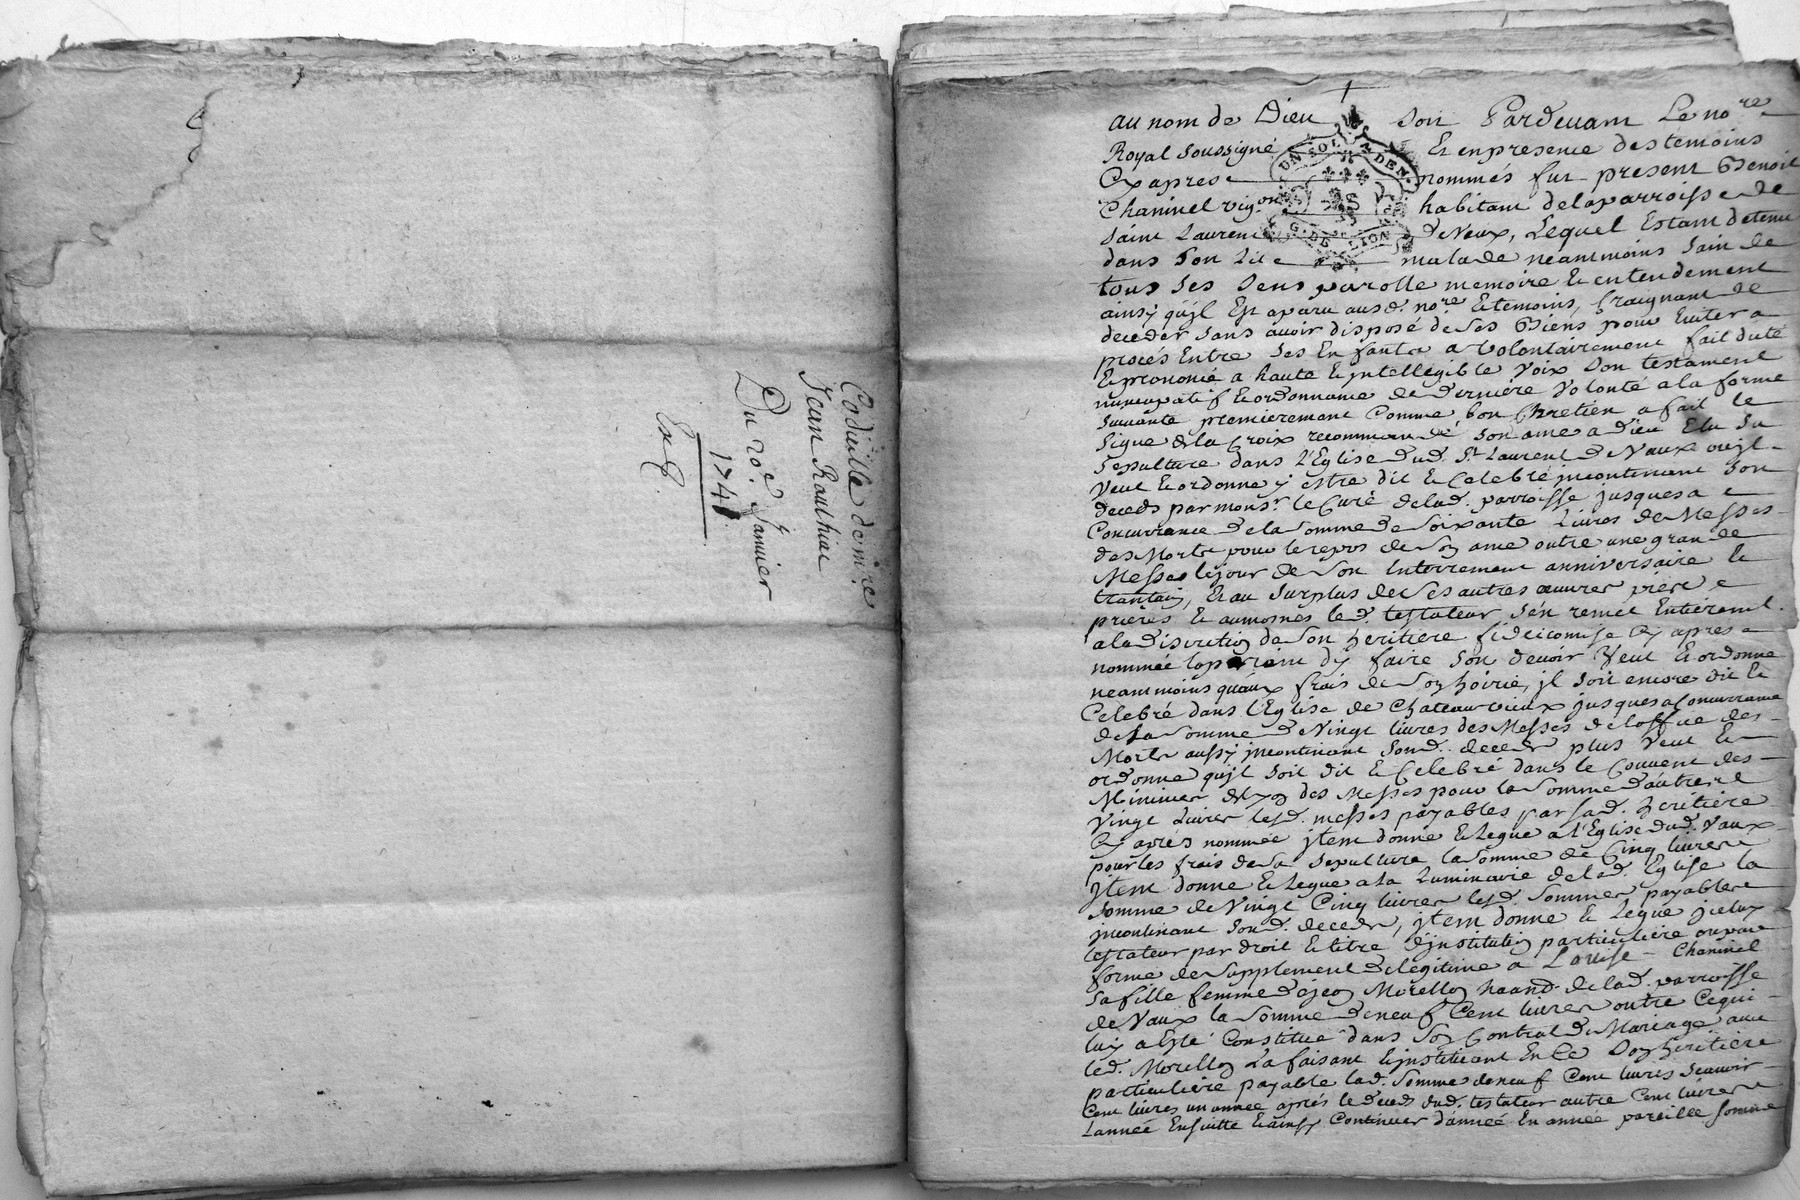 Codicille de mre
Jean Roulhiac
Du 20e Janvier
1741
Exp.
au nom de Dieu soit Pardevant Le nore
Royal soussigné Et en presence des temoins
Cy apres nommés fut present Benoit
Chaninel vigon habitant de la parroisse de
saint Laurent de Vaux, Lequel Estant detenu
UN SOL 4 DEN.
G. DE LION
dans son Lit malade neantmoins sain de
tous ses sens parolle memoire Et entendement
ainsy qu'jl Est aparu ausd. nore Et temoins, Craignant de
deceder sans avoir disposé de ses Biens pour Eviter a
procés Entre ses Enfants a volontairement fait dicté
Et prononcé a haute Et jntellegible voix son testament
nuncupatif Et ordonnance de derniére volonté a la forme
suivante premierement Comme bon Chretien a fait le
signe de la Croix recommandé son ame a Dieu Elu sa
sepulture dans L'Eglise dud. St Laurent de Vaux ou jl
veut Et ordonne y estre dit Et Celebré jncontinant son
deceds par monsr. le Curé de lad. parroisse jusques a
Concurrance de la somme de soixante Livres de Messes
des Morts pour le repos de son ame outre une grande
Messe le jour de son Enterrement anniversaire Et
trantain, Et au surplus de ses autres œuvres pies
prieres Et aumosnes led. testateur s'en remet Entierement
a la discretion de son heritiere fideicomise Cy apres
nommée la priant d'y faire son devoir Veut Et ordonne
neantmoins qu'aux frais de son hoirie, jl soit encore dit Et
Celebré dans l'Eglise de Chateauvieux jusques a Concurrance
de la somme de Vingt livres des Messes de l'office des
Morts aussy jncontinant sond. deceds plus Veut Et
ordonne qu'jl soit dit Et Celebré dans le Couvent des
Minimes de Lyon des Messes pour la somme d'autre
Vingt Livres lesd. messes payables par sad. heritiére
Cy aprés nommée jtem donne Et legue a l'Eglise dud. Vaux
pour les frais de sa sepulture la somme de Cinq livres
jtem donne Et legue a la Luminaire de lad. Eglise la
somme de Vingt Cinq livres lesd. sommes payables
jncontinant sond. deceds, jtem donne Et Legue jceluy
testateur par droit Et titre d'jnstitution particuliére ou par
forme de supplement de legitime a Louise Chaninel
sa fille femme de Morellon de lad. parroisse
de Vaux la somme de neuf Cent livres outre Ce qui
luy a Esté Constitué dans son Contrat de Mariage avec
led. Morellon La faisant Et jnstituant En Ce son heritiére
particuliére payable lad. somme de neuf Cent livres scavoir
Cent livres un année aprés le deceds dud. testateur autre Cent livres
L'année Ensuitte Et ainsy Continuer d'année En année pareille somme